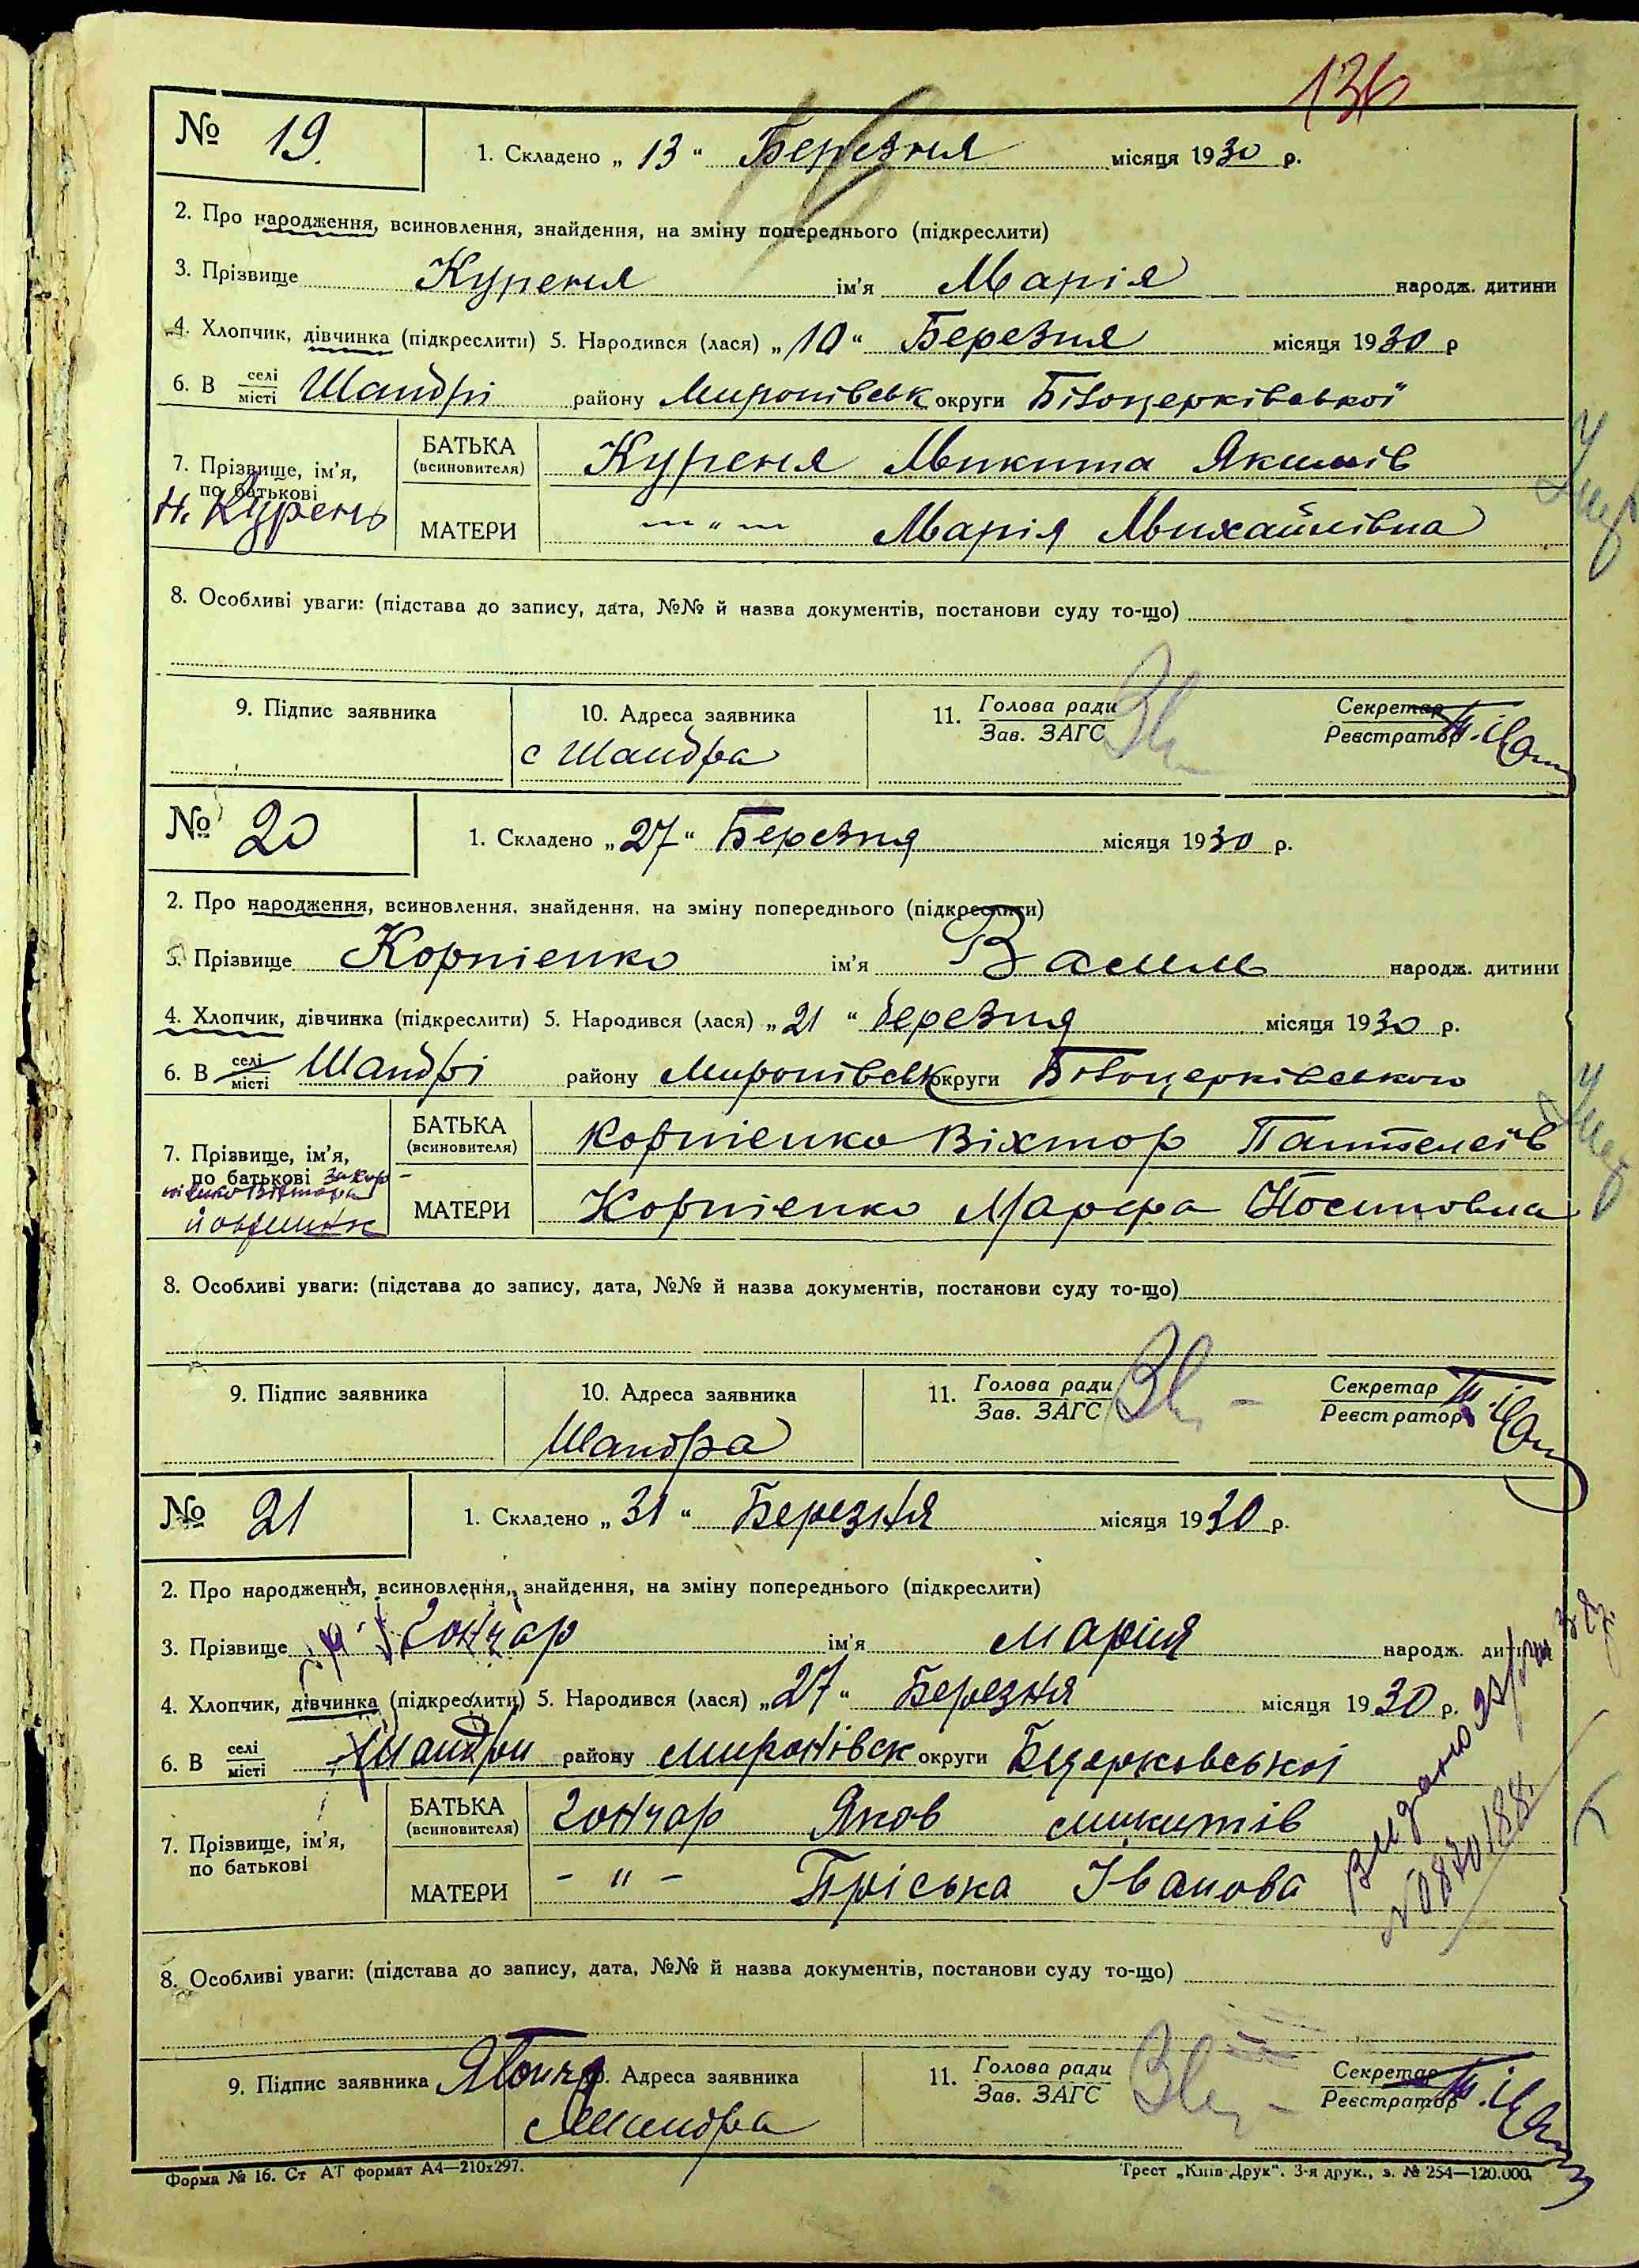 136
№ 19.
1. Складено „ 13 “ Березня місяця 1930 р.
2. Про народження, всиновлення, знайдення, на зміну попереднього (підкреслити)
3. Прізвище Куреня ім'я Марія народж. дитини
4. Хлопчик, дівчинка (підкреслити) 5. Народився (лася) „ 10 “ Березня місяця 1930 р
6. В селі місті Шандрі району Миронівськ округи Білоцерківської
7. Прізвище, ім'я, по батькові
БАТЬКА (всиновителя) Куреня Микита Якимів
Н. Курень
МАТЕРИ — „ — Марія Михайлівна
8. Особливі уваги: (підстава до запису, дата, №№ й назва документів, постанови суду то-що)
9. Підпис заявника
10. Адреса заявника
11. Голова ради Зав. ЗАГС
Секретар Реєстратор
с Шандра
№ 20
1. Складено „ 27 “ Березня місяця 1930 р.
2. Про народження, всиновлення, знайдення, на зміну попереднього (підкреслити)
3. Прізвище Корнієнко ім'я Василь народж. дитини
4. Хлопчик, дівчинка (підкреслити) 5. Народився (лася) „ 21 “ березня місяця 1930 р.
6. В селі місті Шандрі району Миронівськ округи Білоцерківського
7. Прізвище, ім'я, по батькові
БАТЬКА (всиновителя) Корнієнко Віхтор Пантелеїв
МАТЕРИ Корнієнко Марфа Йосиповна
8. Особливі уваги: (підстава до запису, дата, №№ й назва документів, постанови суду то-що)
9. Підпис заявника
10. Адреса заявника
11. Голова ради Зав. ЗАГС
Секретар Реєстратор
Шандра
№ 21
1. Складено „ 31 “ Березня місяця 1930 р.
2. Про народження, всиновлення, знайдення, на зміну попереднього (підкреслити)
3. Прізвище Гончар ім'я Марія народж. дитини
4. Хлопчик, дівчинка (підкреслити) 5. Народився (лася) „ 27 “ Березня місяця 1930 р.
6. В селі місті Шандри району Миронівск округи Бцерковської
7. Прізвище, ім'я, по батькові
БАТЬКА (всиновителя) Гончар Яков Микитів
МАТЕРИ — " — Пріська Іванова
Видано
8. Особливі уваги: (підстава до запису, дата, №№ й назва документів, постанови суду то-що)
9. Підпис заявника
Адреса заявника
11. Голова ради Зав. ЗАГС
Секретар Реєстратор
с Шандра
Форма № 16. Ст АТ формат А4—210х297.
Трест „Київ-Друк“. 3-я друк., з. № 254—120.000.